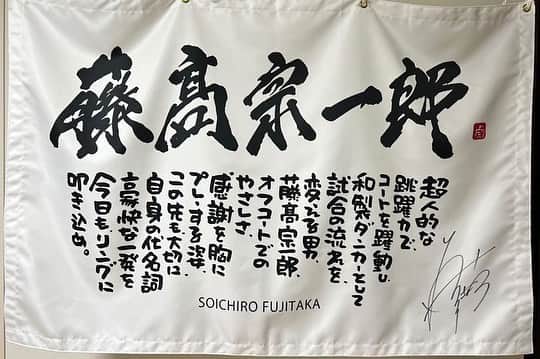 藤髙宗一郎
超人的な
跳躍力で
コートを躍動し
和製ダンカーとして
試合の流れを
変える男、
藤髙宗一郎。
オフコートでの
やさしさ、
感謝を胸に
プレーする姿、
この先も大切に
自身の代名詞
豪快な一発を
今日もリングに
叩き込め。
SOICHIRO FUJITAKA